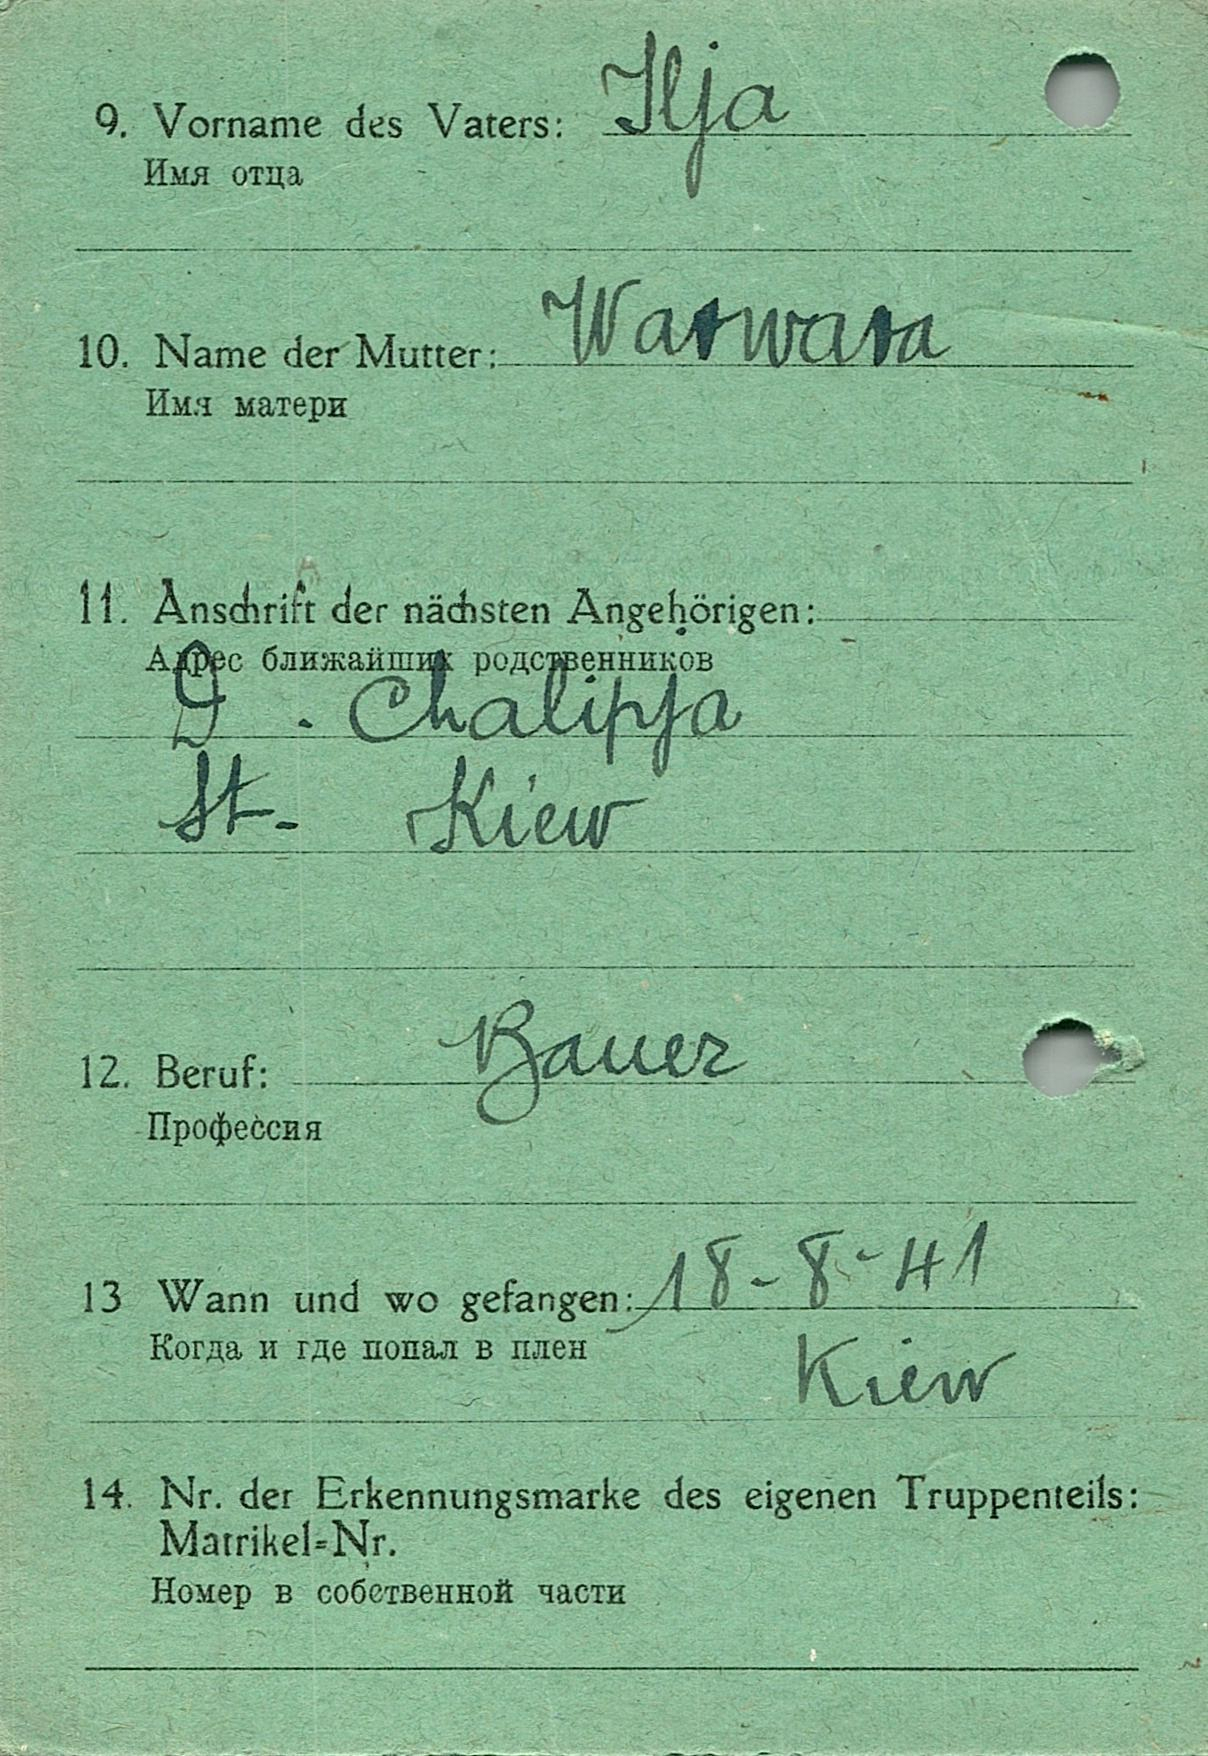 9. Vorname des Vaters: Ilja
Имя отца
10. Name der Mutter: Warwara
Имя матери
11. Anschrift der nächsten Angehörigen:
Адрес ближайших родственников
D. Chalipja
St. Kiew
12. Beruf: Bauer
Профессия
13 Wann und wo gefangen: 18-8-41
Когда и где попал в плен Kiew
14. Nr. der Erkennungsmarke des eigenen Truppenteils:
Matrikel=Nr.
Номер в собственной части